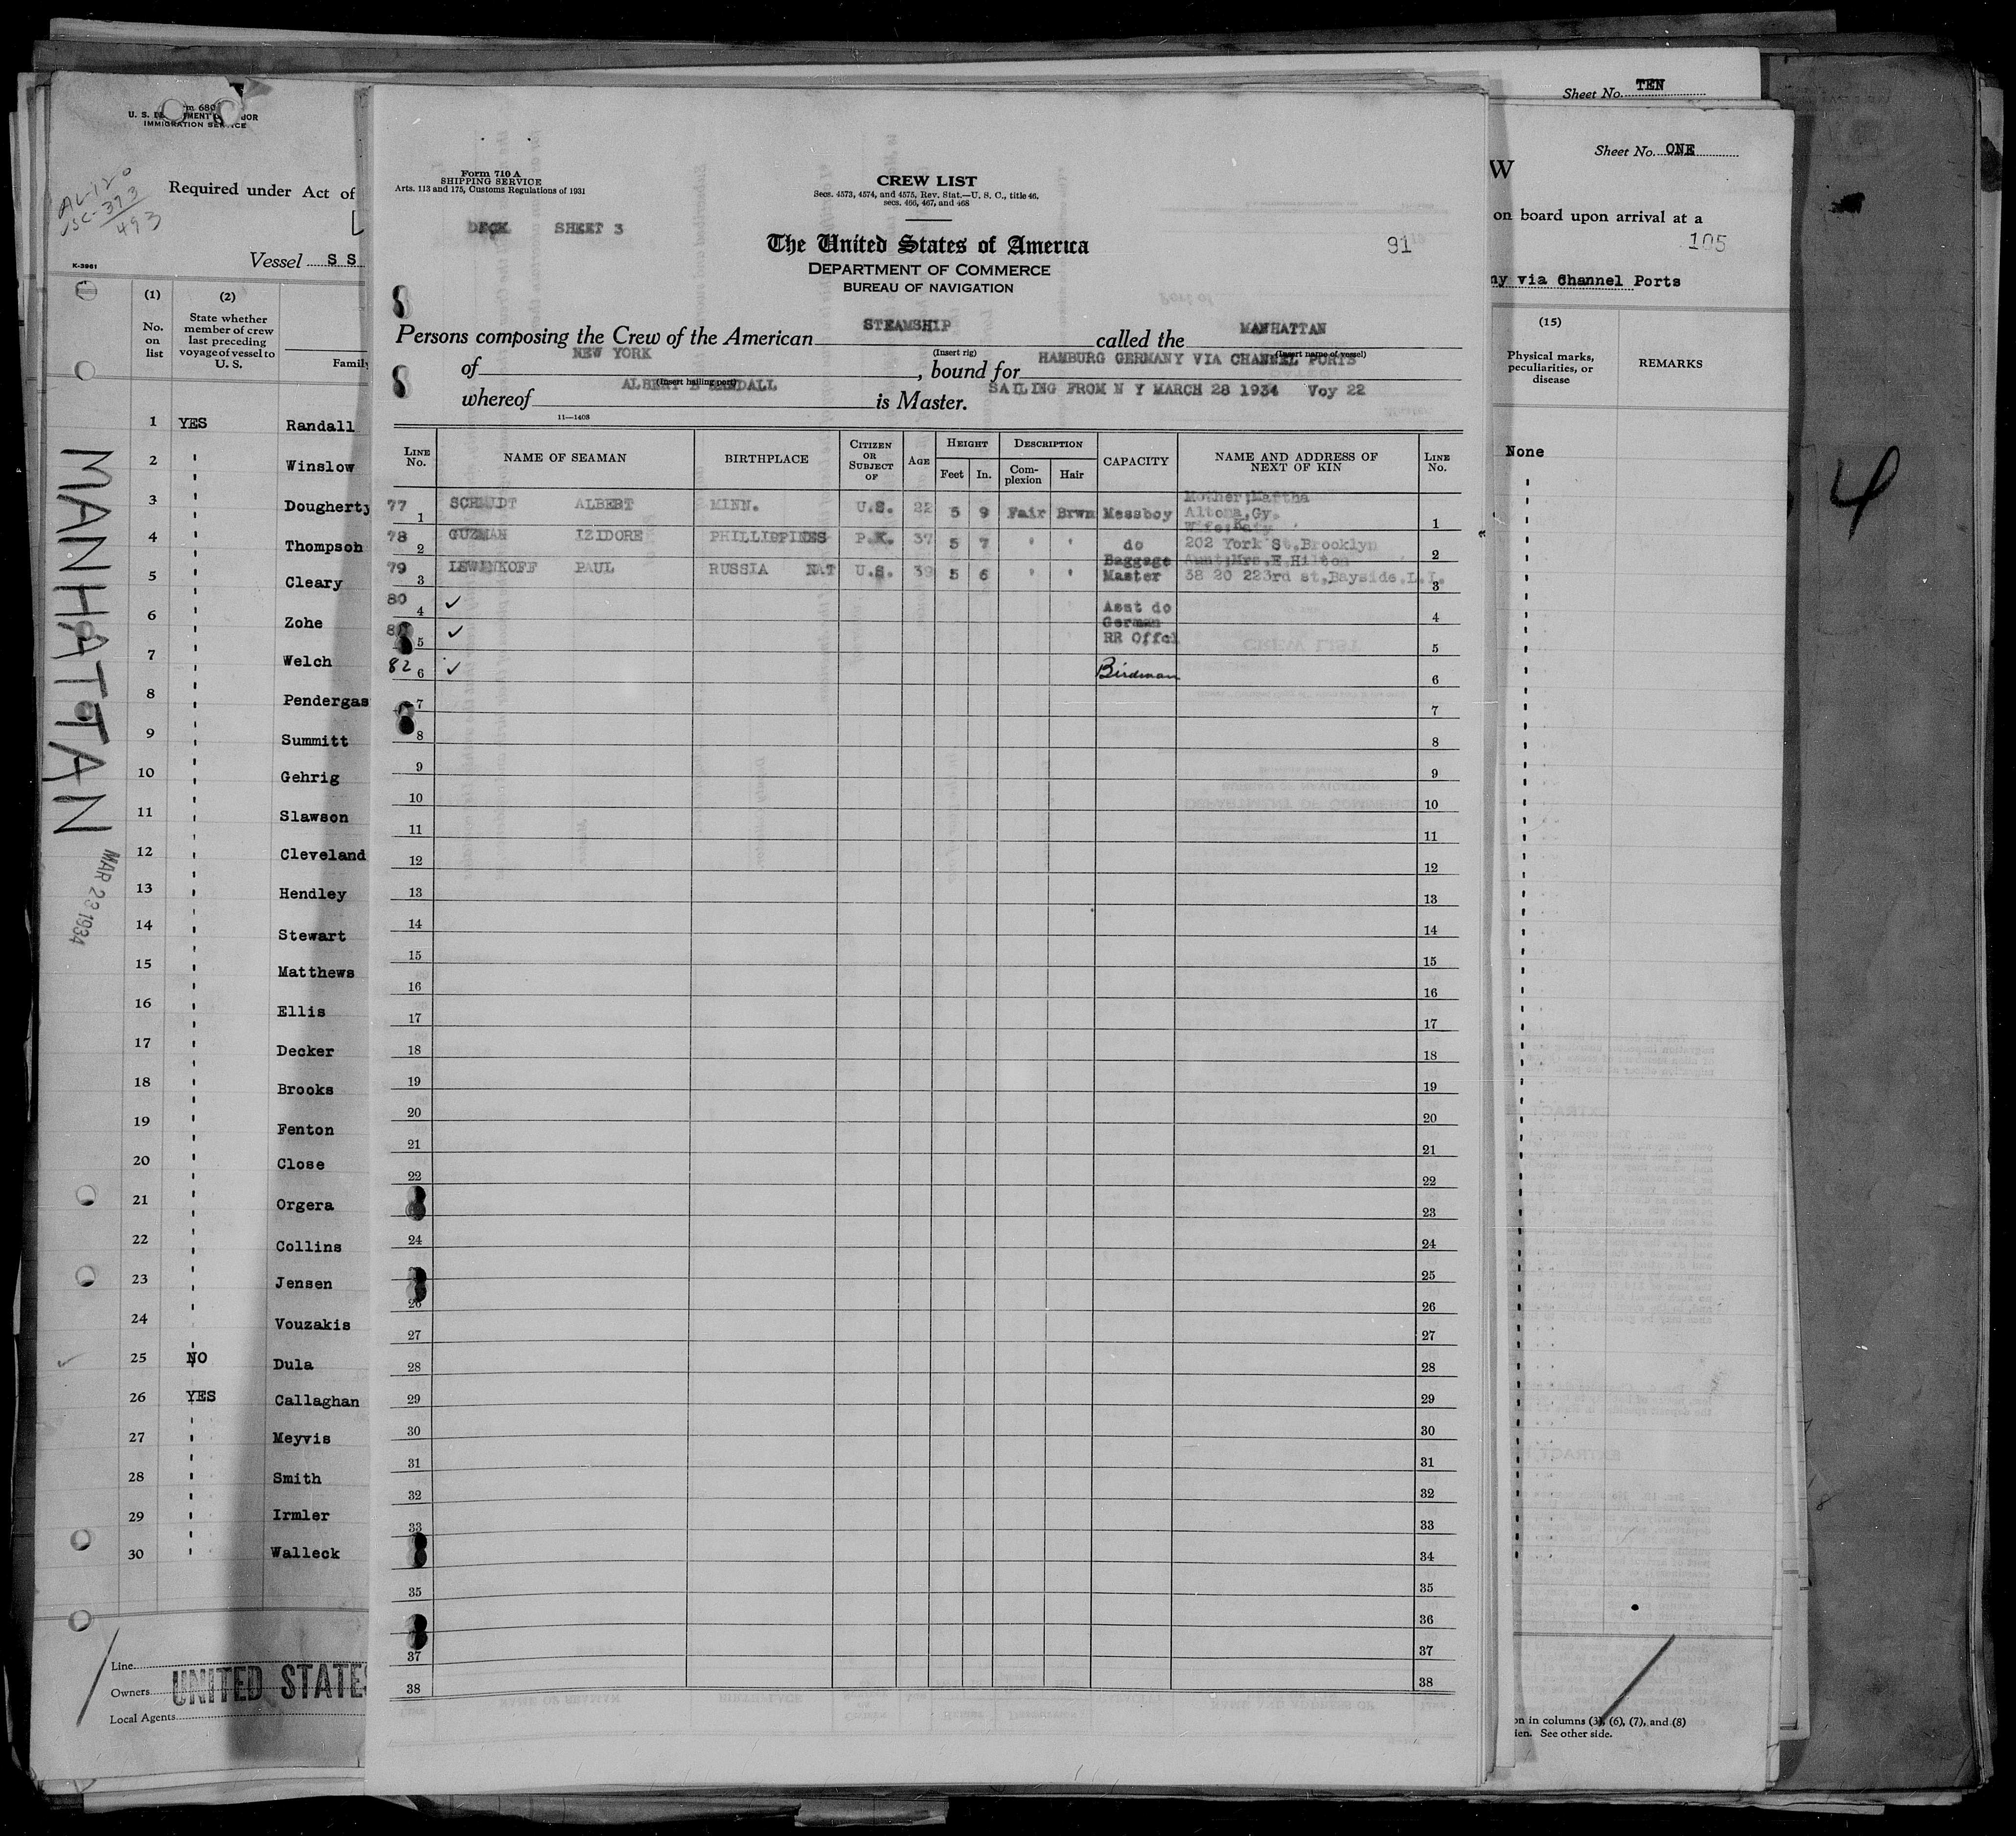 Sheet No. TEN
Sheet No. ONE
W
on board upon arrival at a
105
ny via Channel Ports
(15)
Physical marks, peculiarities, or disease
REMARKS
None
4
m 680
U. S. DEPARTMENT OF LABOR
IMMIGRATION SERVICE
493
Required under Act of
Vessel S S
K-3961
(1)
No. on list
(2)
State whether member of crew last preceding voyage of vessel to U. S.
Family
1 YES Randall
2 " Winslow
3 " Dougherty
4 " Thompson
5 " Cleary
6 " Zohe
7 " Welch
8 " Pendergas
9 " Summitt
10 " Gehrig
11 " Slawson
12 " Cleveland
13 " Hendley
14 " Stewart
15 " Matthews
16 " Ellis
17 " Decker
18 " Brooks
19 " Fenton
20 " Close
21 " Orgera
22 " Collins
23 " Jensen
24 " Vouzakis
25 NO Dula
26 YES Callaghan
27 " Meyvis
28 " Smith
29 " Irmler
30 " Walleck
MANHATTAN
MAR 23 1934
Line
Owners UNITED STATES
Local Agents
Form 710 A
SHIPPING SERVICE
Arts. 113 and 175, Customs Regulations of 1931
DECK SHEET 3
CREW LIST
Secs. 4573, 4574, and 4575, Rev. Stat.—U. S. C., title 46,
secs. 466, 467, and 468
The United States of America
91
DEPARTMENT OF COMMERCE
BUREAU OF NAVIGATION
Persons composing the Crew of the American STEAMSHIP called the MANHATTAN
(Insert rig) (Insert name of vessel)
of NEW YORK, bound for HAMBURG GERMANY VIA CHANNEL PORTS
(Insert hailing port)
whereof ALBERT B RANDALL is Master. SAILING FROM N Y MARCH 28 1934 Voy 22
11—1408
LINE No. NAME OF SEAMAN BIRTHPLACE CITIZEN OR SUBJECT OF AGE HEIGHT Feet In. DESCRIPTION Complexion Hair CAPACITY NAME AND ADDRESS OF NEXT OF KIN LINE No.
77 1 SCHMIDT ALBERT MINN. U.S. 22 5 9 Fair Brwn Messboy Mother;Martha Altona,Gy. 1
78 2 GUZMAN IZIDORE PHILLIPPINES P.K. 37 5 7 " " do Wife;Katy 202 York St.Brooklyn 2
79 3 LEWINKOFF PAUL RUSSIA NAT U.S. 39 5 6 " " Baggage Master Aunt;Mrs.E.Hilton 38 20 223rd st,Bayside.L.I. 3
80 4 ✓ Asst do 4
5 ✓ German RR Offcl 5
82 6 ✓ Birdman 6
7 7
8 8
9 9
10 10
11 11
12 12
13 13
14 14
15 15
16 16
17 17
18 18
19 19
20 20
21 21
22 22
23
24 24
25
26 26
27 27
28 28
29 29
30 30
31 31
32 32
33 33
34
35 35
36
37 37
38 38
on in columns (3), (6), (7), and (8)
ien. See other side.